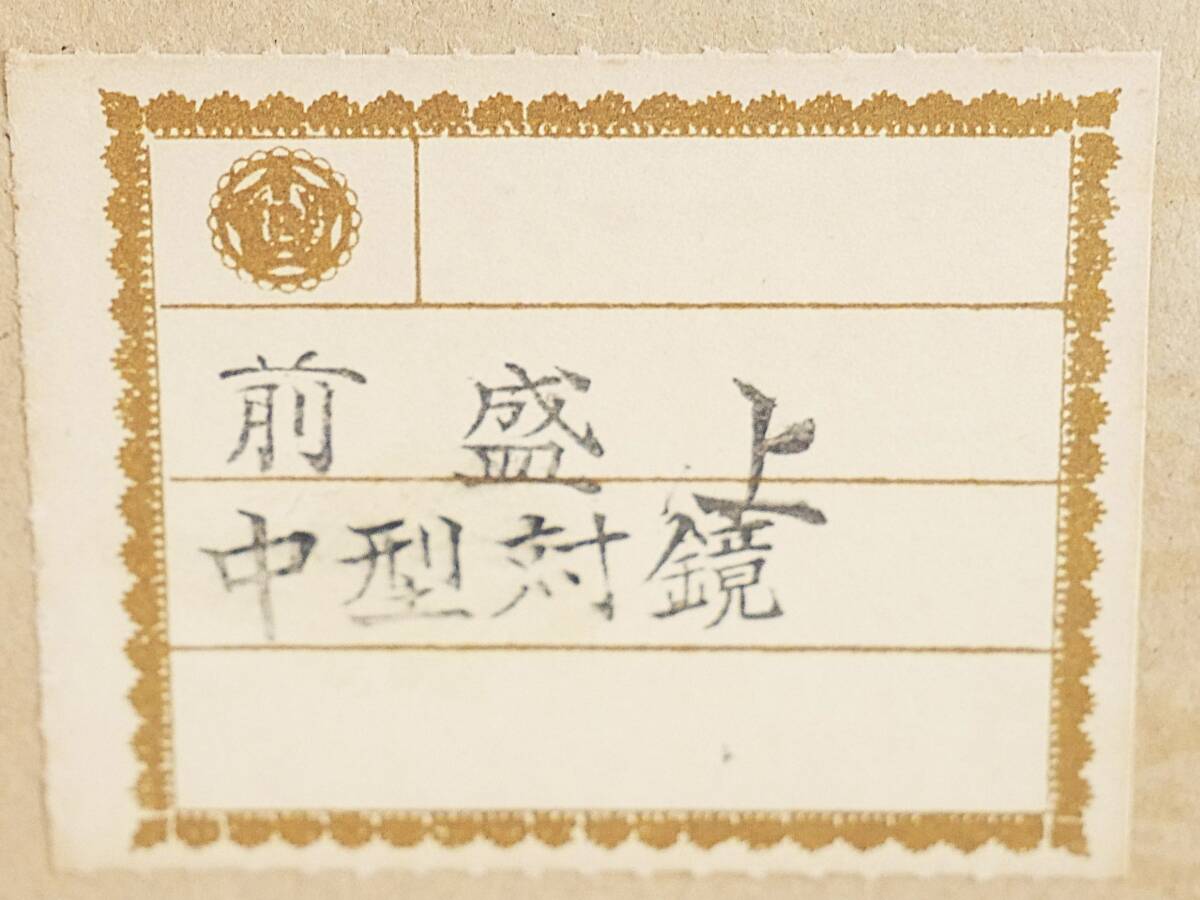 前盛上
中型対鏡